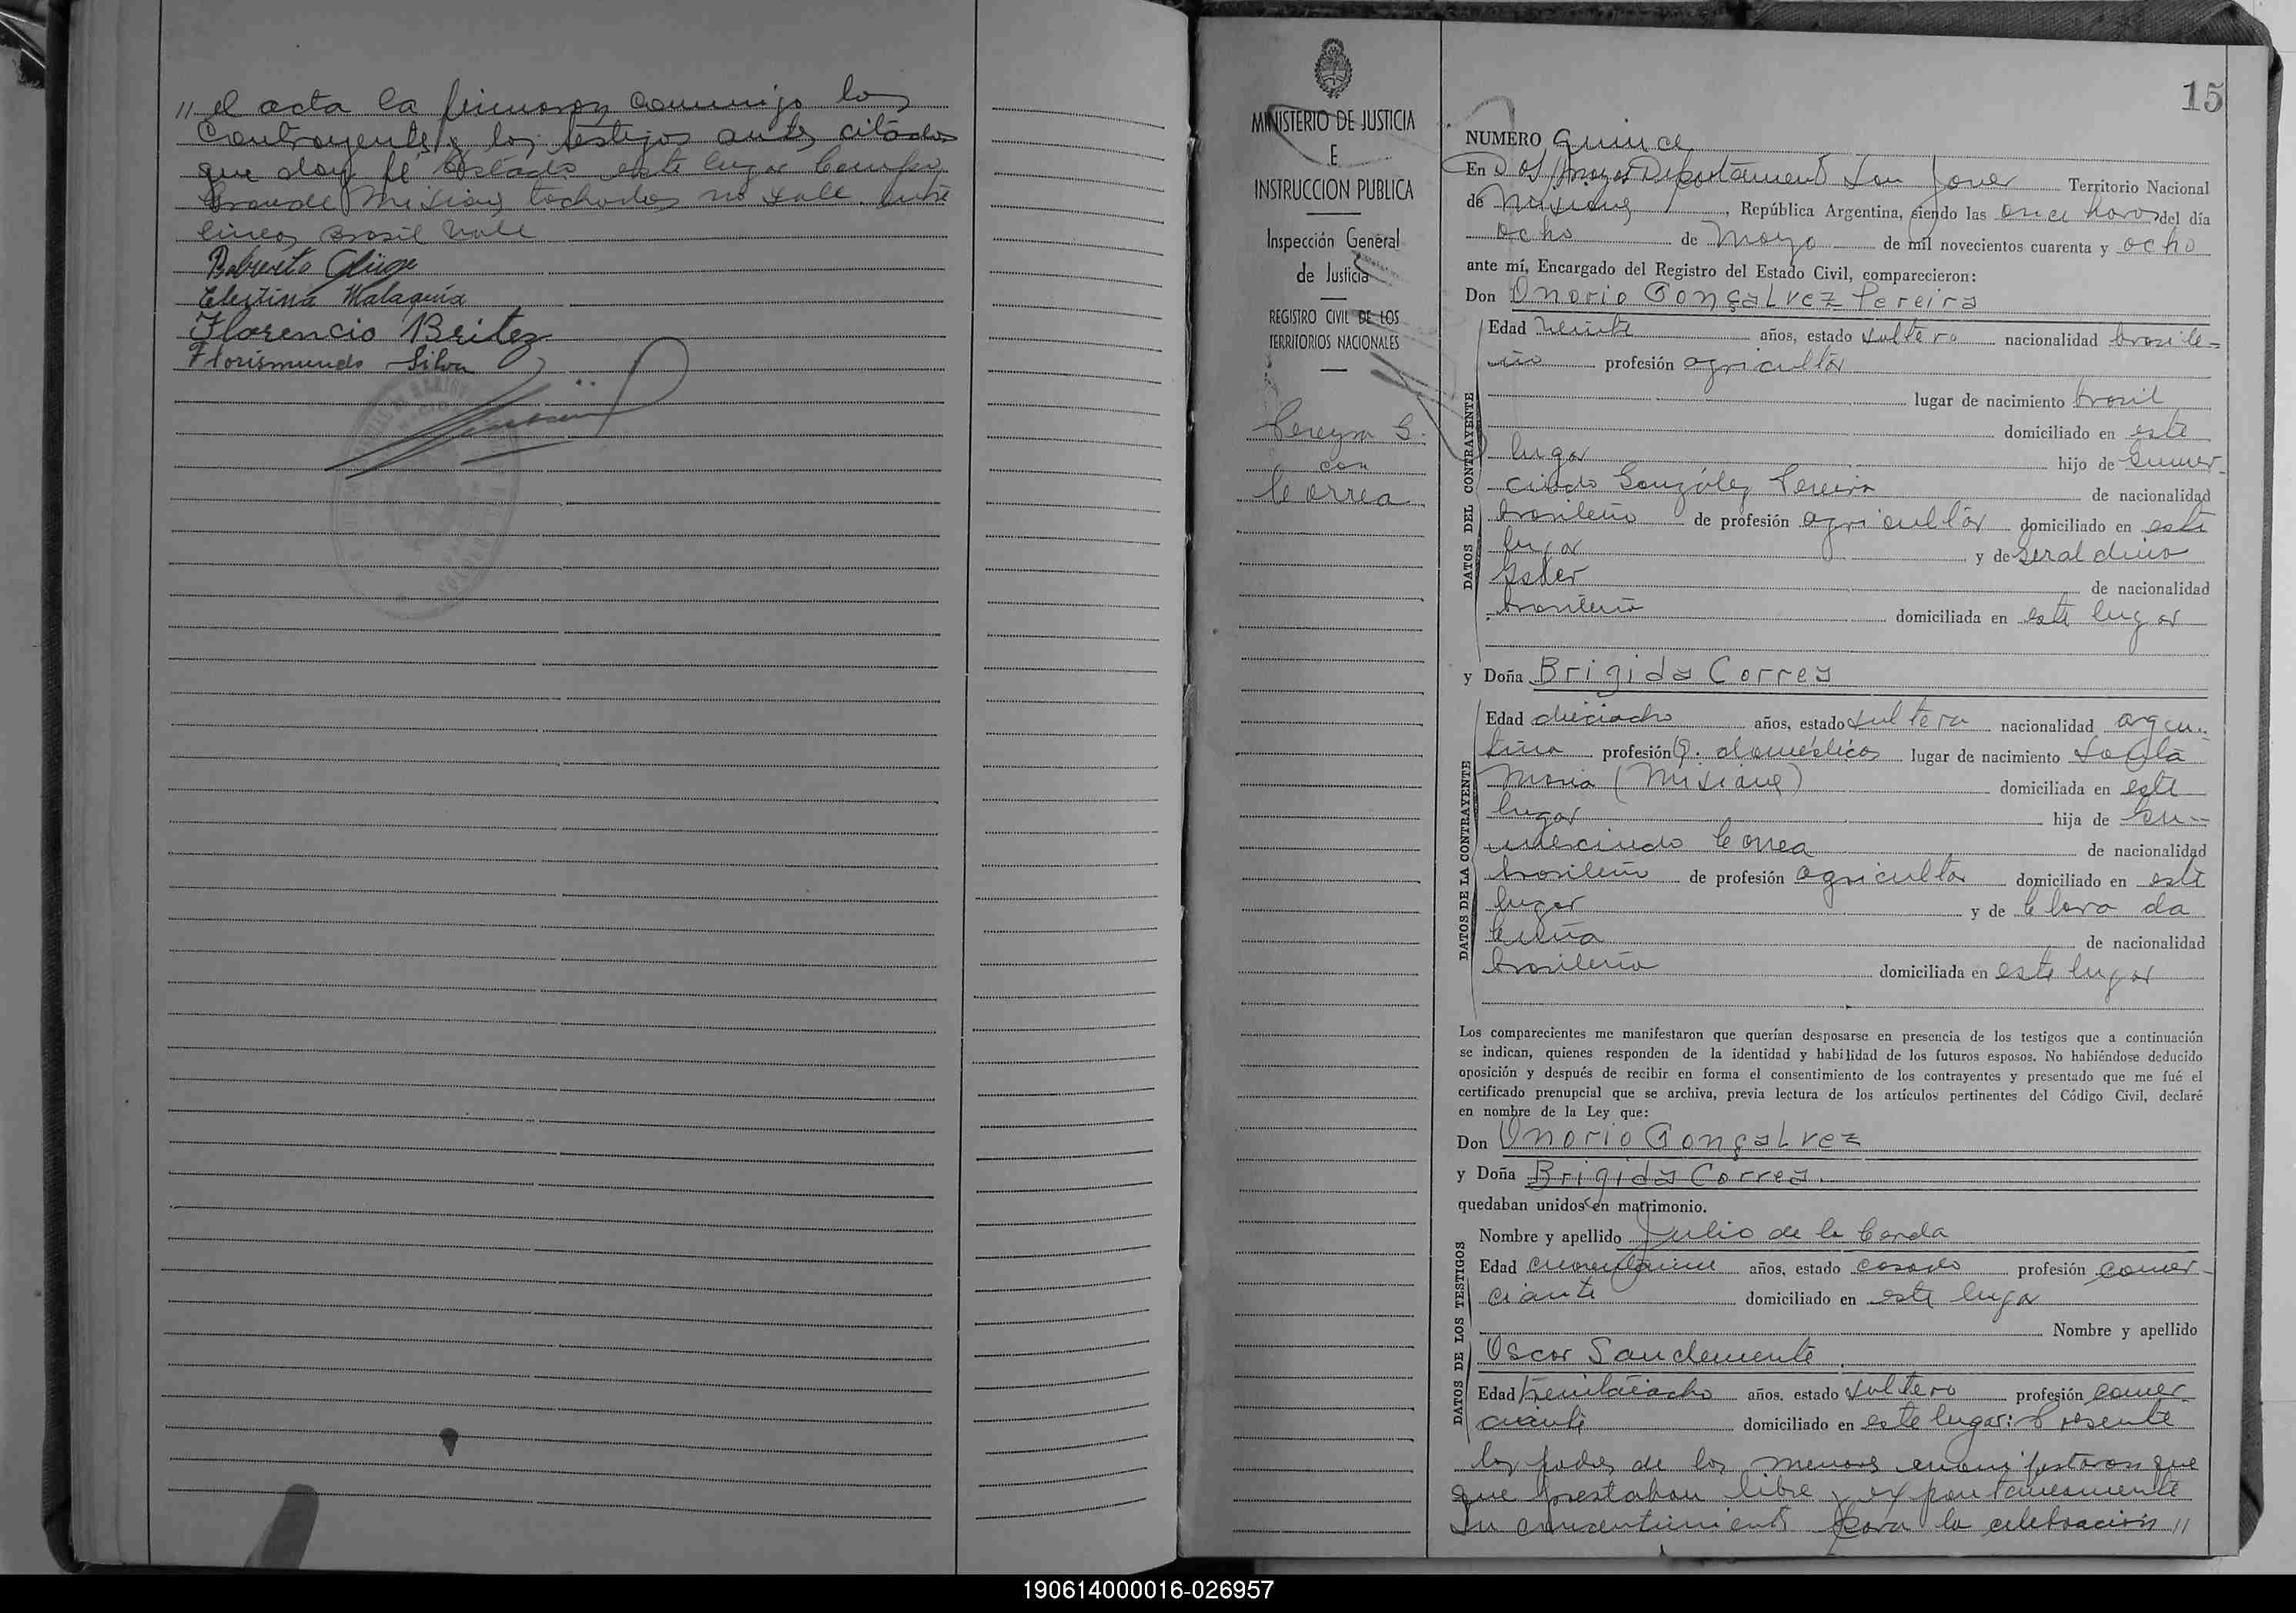 // el acta la firmaron conmigo los
contrayentes y los testigos antes citados
que doy fé Testado este lugar Campo
Grande Misiones tachados no vale. Entre
lineas Brasil Vale
Celestina Malaquia
Florencio Britez
Florismundo Silva
MINISTERIO DE JUSTICIA
E
INSTRUCCION PUBLICA
Inspección General
de Justicia
REGISTRO CIVIL DE LOS
TERRITORIOS NACIONALES
Pereyra G.
con
Correa
15
NUMERO quince
En Dos Arroyos Departamento San Javier Territorio Nacional
de Misiones, República Argentina, siendo las once horas del día
ocho de Mayo de mil novecientos cuarenta y ocho
ante mí, Encargado del Registro del Estado Civil, comparecieron:
Don Onorio Gonçalvez Pereira
DATOS DEL CONTRAYENTE
Edad veinte años, estado soltero nacionalidad brasile-
ño profesión agricultor
lugar de nacimiento brasil
domiciliado en este
lugar hijo de Gumer-
cindo González Pereira de nacionalidad
brasileño de profesión agricultor domiciliado en este
lugar y de Geraldina
Ester de nacionalidad
brasileña domiciliada en este lugar
y Doña Brigida Correa
DATOS DE LA CONTRAYENTE
Edad dieciocho años, estado soltera nacionalidad argen-
tina profesión Q. domésticos lugar de nacimiento Santa
Maria (Misiones) domiciliada en este
lugar hija de Gu-
mercindo Correa de nacionalidad
brasileño de profesión agricultor domiciliado en este
lugar y de Clara da
Cuña de nacionalidad
brasileña domiciliada en este lugar
Los comparecientes me manifestaron que querían desposarse en presencia de los testigos que a continuación
se indican, quienes responden de la identidad y habilidad de los futuros esposos. No habiéndose deducido
oposición y después de recibir en forma el consentimiento de los contrayentes y presentado que me fué el
certificado prenupcial que se archiva, previa lectura de los artículos pertinentes del Código Civil, declaré
en nombre de la Ley que:
Don Onorio Gonçalvez
y Doña Brigida Correa.
quedaban unidos en matrimonio.
DATOS DE LOS TESTIGOS
Nombre y apellido Julio de la Canda
Edad años, estado casado profesión comer-
ciante domiciliado en este lugar
Nombre y apellido
Oscar Sanclemente
Edad treintaiocho años, estado soltero profesión comer-
ciante domiciliado en este lugar: Presente
los padres de los menores manifestaron que
que prestaban libre y expontaneamente
su consentimiento para la celebración //
190614000016-026957